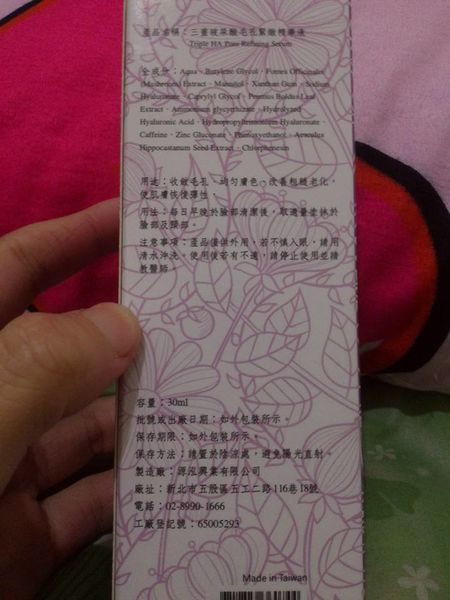 產品名稱：三重玻尿酸毛孔緊緻精華液
Triple HA Pore Refining Serum
全成份：Aqua、Butylene Glycol、Fomes Officinalis
(Mushroom) Extract、Mannitol、Xanthan Gum、Sodium
Hyaluronate、Caprylyl Glycol、Peumus Boldus Leaf
Extract、Ammonium glycyrrhizate、Hydrolyzed
Hyaluronic Acid、Hydroxypropyltrimonium Hyaluronate、
Caffeine、Zinc Gluconate、Phenoxyethanol、Aesculus
Hippocastanum Seed Extract、Chlorphenesin
用途：收斂毛孔、均勻膚色、改善粗糙老化，
使肌膚恢復彈性。
用法：每日早晚於臉部清潔後，取適量塗抹於
臉部及頸部。
注意事項：產品僅供外用，若不慎入眼，請用
清水沖洗。使用後若有不適，請停止使用並請
教醫師。
容量：30ml
批號或出廠日期：如外包裝所示。
保存期限：如外包裝所示。
保存方法：請置於陰涼處，避免陽光直射。
製造廠：源泓興業有限公司
廠址：新北市五股區五工二路116巷18號
電話：02-8990-1666
工廠登記號：65005293
Made in Taiwan